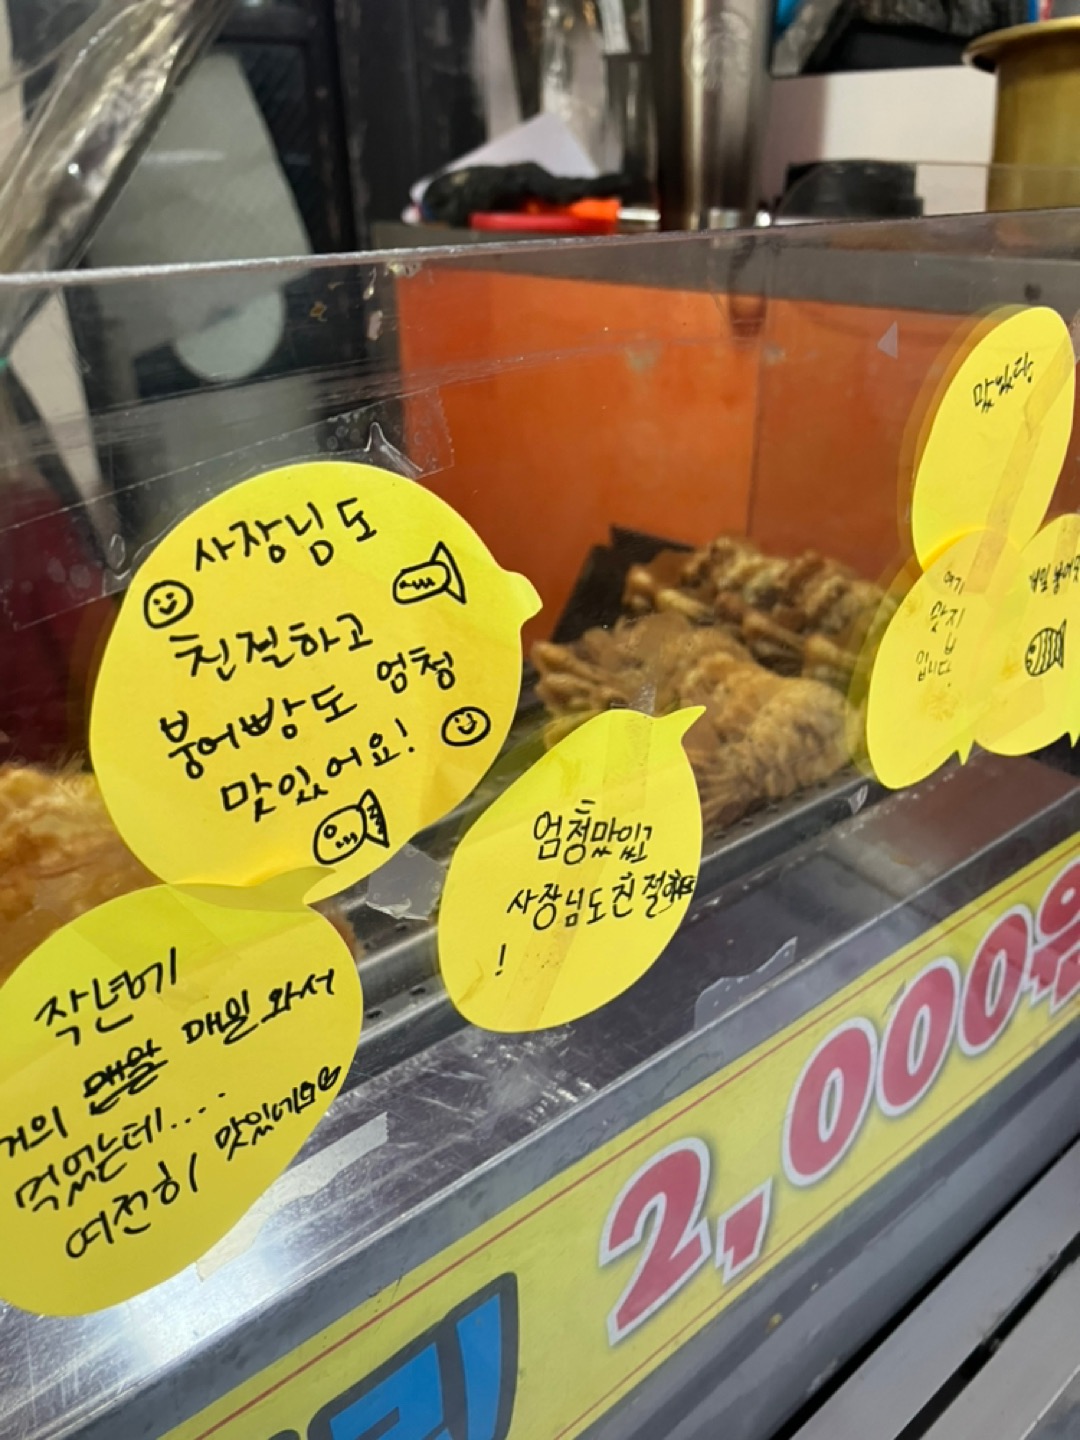 사장님도
친절하고
붕어빵도 엄청
맛있어요!
작년에
거의 매일 와서
먹었는데....
여전히 맛있에요
엄청맛있고
사장님도친절해요
!
맛있다!
여기
맛지
입니다.
매일 붕어
2,000원